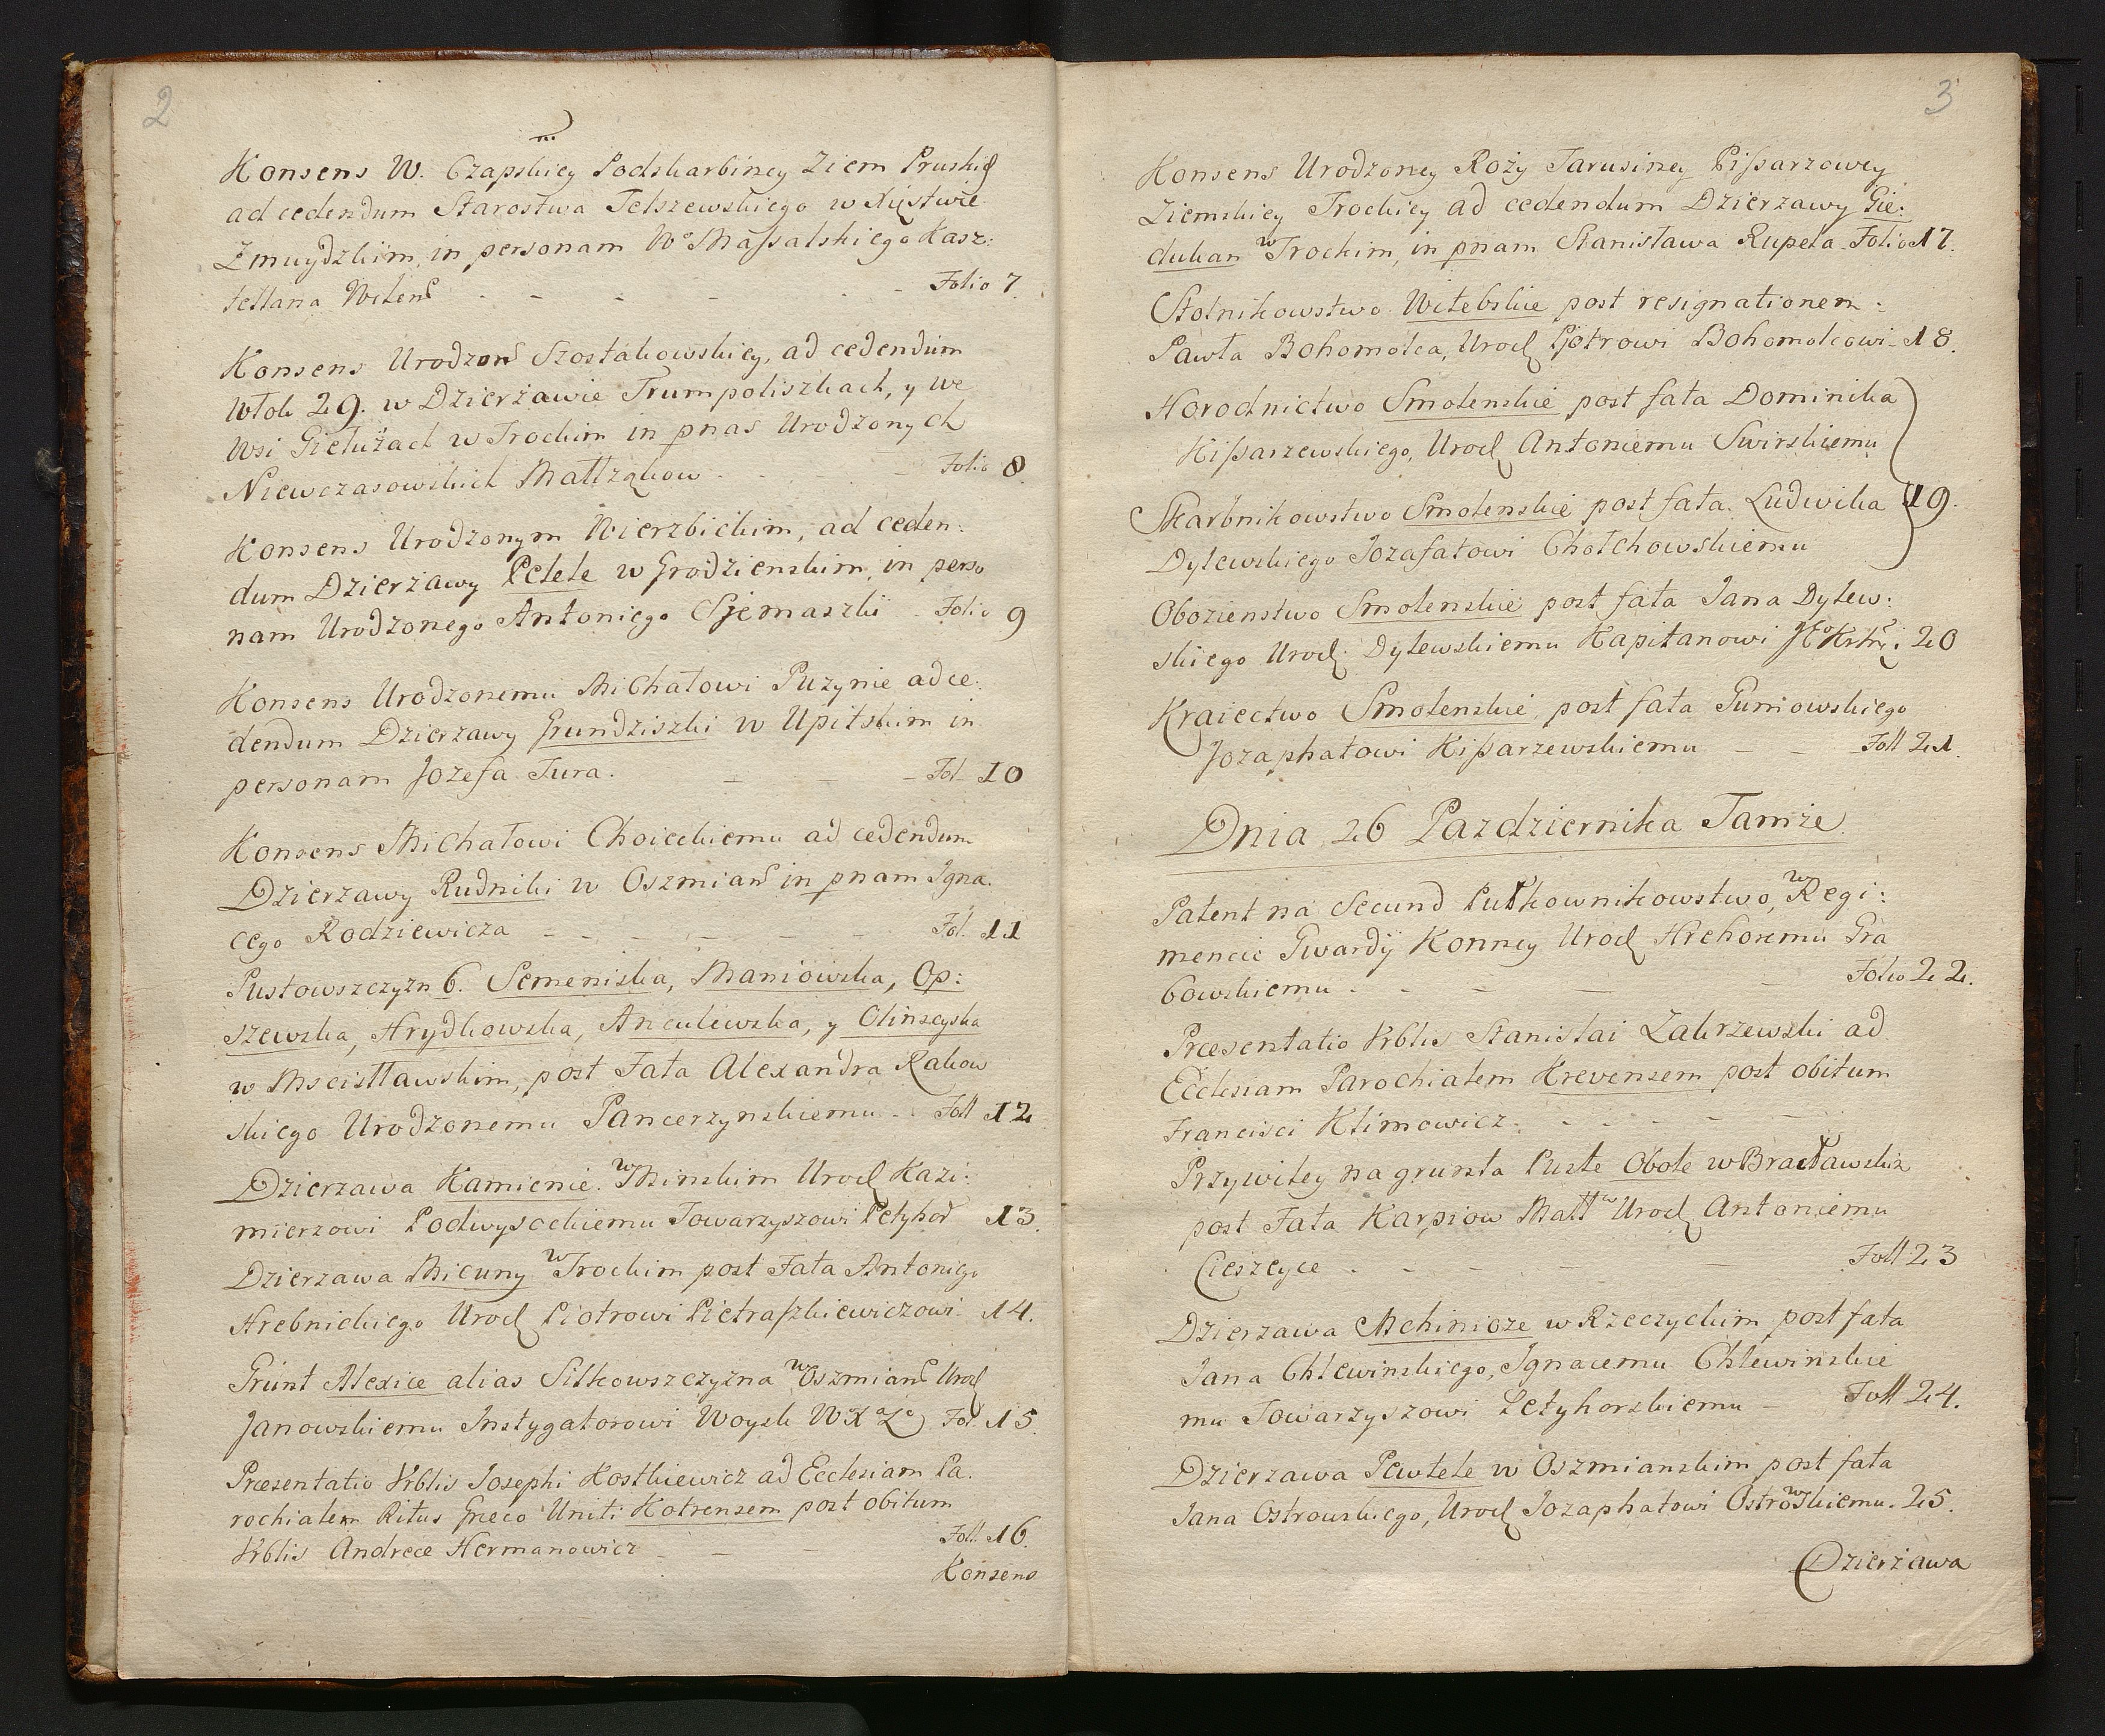 2
Konsens W. Czapskiey Podskarbiney Ziem Pruskich
ad cedendum Starostwa Telszewskiego w Xięstwie
Zmuydzkim, in personam Wo Maſsalskiego Kasz:
tellana Wilens - - - - Folio 7.
Konsens Urodzons Szostakowskiey, ad cedendum
Włok 29. w Dzierżawie Trumpoliszkach, y we
Wsi Giełużach w Trockim in pnas Urodzonych
Niewczasowskich Małłząkow - - - Folio 8.
Konsens Urodzonym Wierzbickim, ad ceden:
dum Dzierżawy Pelele w Grodzienskim, in perso
nam Urodzonego Antoniego Sjemaszki - Folio 9
Konsens Urodzonemu Michałowi Puzynie ad ce:
dendum Dzierzawy Grundziszki w Upitskim in
personam Jozefa Tura. - - - Fol. 10
Konsens Michałowi Choieckiemu ad cedendum
Dzierzawy Rudniki w Oszmians in pnam Igna.
cego Rodziewicza - - - - - Fol. 11
Pustowszczyzn 6. Semeniska, Maniowska, Op:
szewska, Hrydkowska, Anculewska, y Olinscyska
w Mscisłławskim, post Fata Alexandra Rakow
skiego Urodzonemu Pancerzynskiemu - Foll 12
Dzierzawa Kamienie. w Minskim Urod Kazi:
mierzowi Podwysockiemu Towarzyszowi Petyhor 13.
Dzierzawa Micuny w Trockim post Fata Antoniego
Hrebnickiego Urod Piotrowi Pietraſzkiewiczowi. 14.
Grunt Alexice alias Sitkowszczyzna w Oszmians Urod
Janowskiemu Instygatorowi Woysk W X a L o Fol. 15.
Præsentatio Vrblis Josephi Kostkiewicz ad Ecclesiam Pa.
rochialem Ritus Græco Uniti Kotrensem post obitum
Vrblis Andreæ Hermanowicz - - - Foll. 16.
Konsens
3
Konsens Urodzoney Roży Tarusiney Piſsarzowey
Ziemskiey Trockiey ad cedendum Dzierzawy Gie:
dukan w Trockim, in pnam Stanisława Rupeła. Folio 17.
Stolnikowstwo Witebskie post resignationem:
Pawła Bohomolca, Urod Pjotrowi Bohomolcowi - 18.
Horodnictwo Smolenskie post fata Dominika
Kiſsarzewskiego, Urod Antoniemu Swirskiemu
Skarbnikowstwo Smolenskie post fata. Ludwika 19.
Dylewskiego Jozafatowi Chołchowskiemu
Obozienstwo Smolenskie post fata Jana Dylew:
skiego Urod. Dylewskiemu Kapitanowi 20
Kraiectwo Smolenskie post fata Guniowskiego
Jozaphatowi Kiſsarzewskiemu - - Foll 21.
Dnia 26 Pazdziernika Tamże.
Patent na Secund Pułkownikowstwo, w Regi:
mencie Gwardÿ Konney Urod Hrehoremu Gra
bowskiemu. - - - - - Folio 22.
Præsentatio Vrblis Stanislai Zakrzewski ad
Ecclesiam Parochialem Krevensem post obitum
Francisci Klimowicz. - - - - -
Przywiley na grunta Puste Obole w Bracławskim
post Fata Karpiow Małł w Urod Antoniemu
Cieszeyce - - - - - Foll 23
Dzierzawa Mchinicze w Rzeczyckim post fata
Jana Chlewinskiego, Ignacemu Chlewinskie
mu Towarzyszowi Petyhorskiemu - Foll 24.
Dzierzawa Pewlele w Oszmianskim post fata
Jana Ostrowskiego, Urod Jozaphatowi Ostrowskiemu. 25.
Dzierżawa